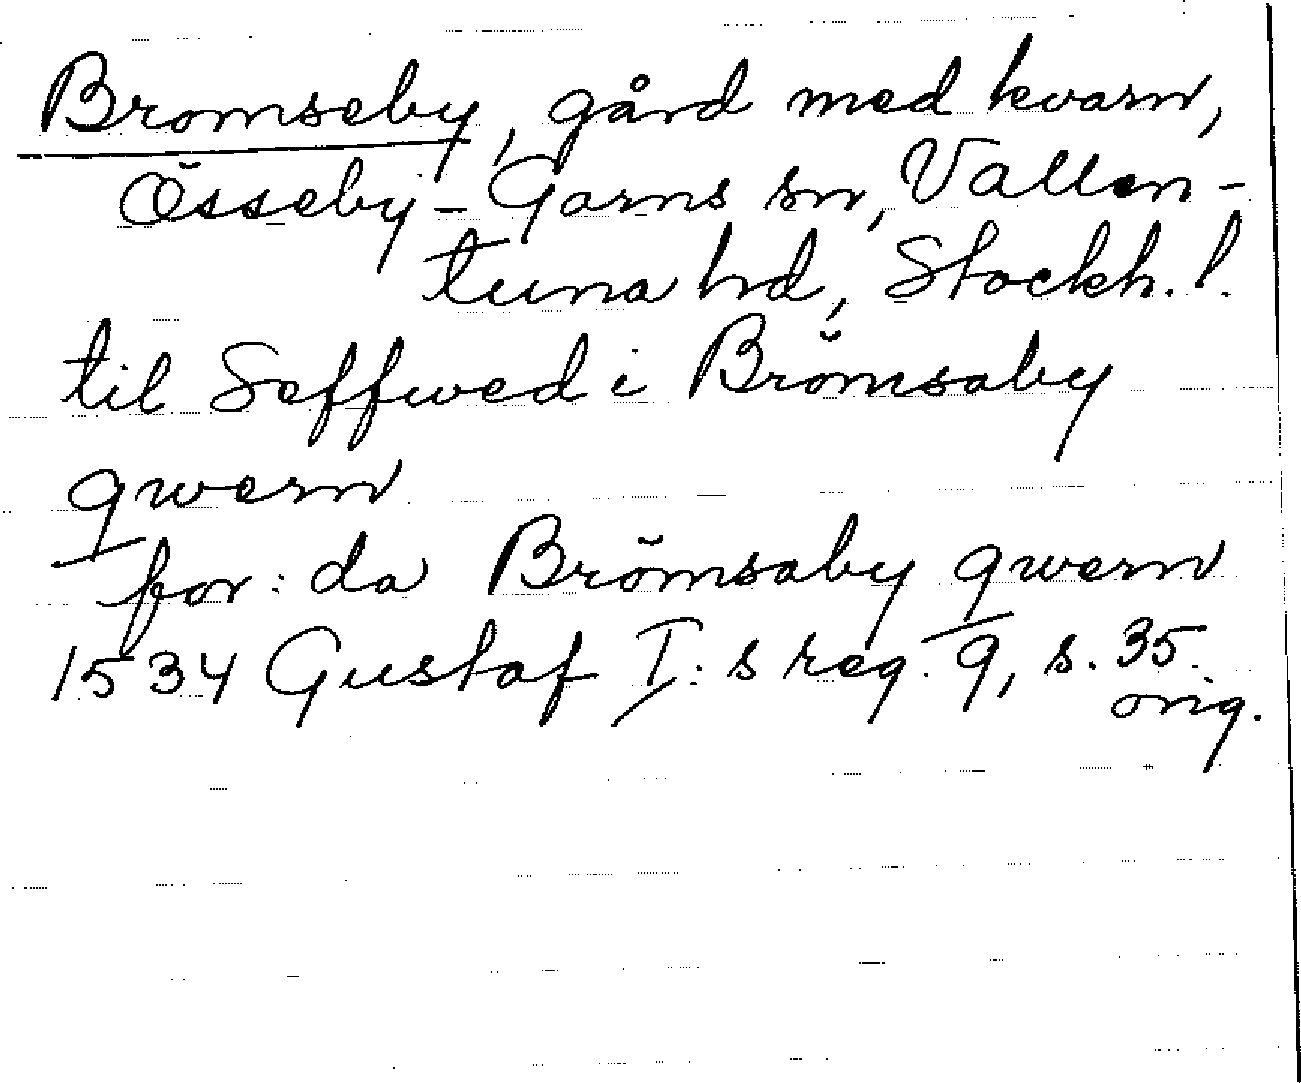 Bromseby, gård med kvarn,
Össeby-Garns sn, Vallen-
tuna hd, Stockh. l.
til Seffwed i Brömsaby
qwern
for: da Brömsaby qwern
1534 Gustaf I:s reg. 9, s. 35.
orig.